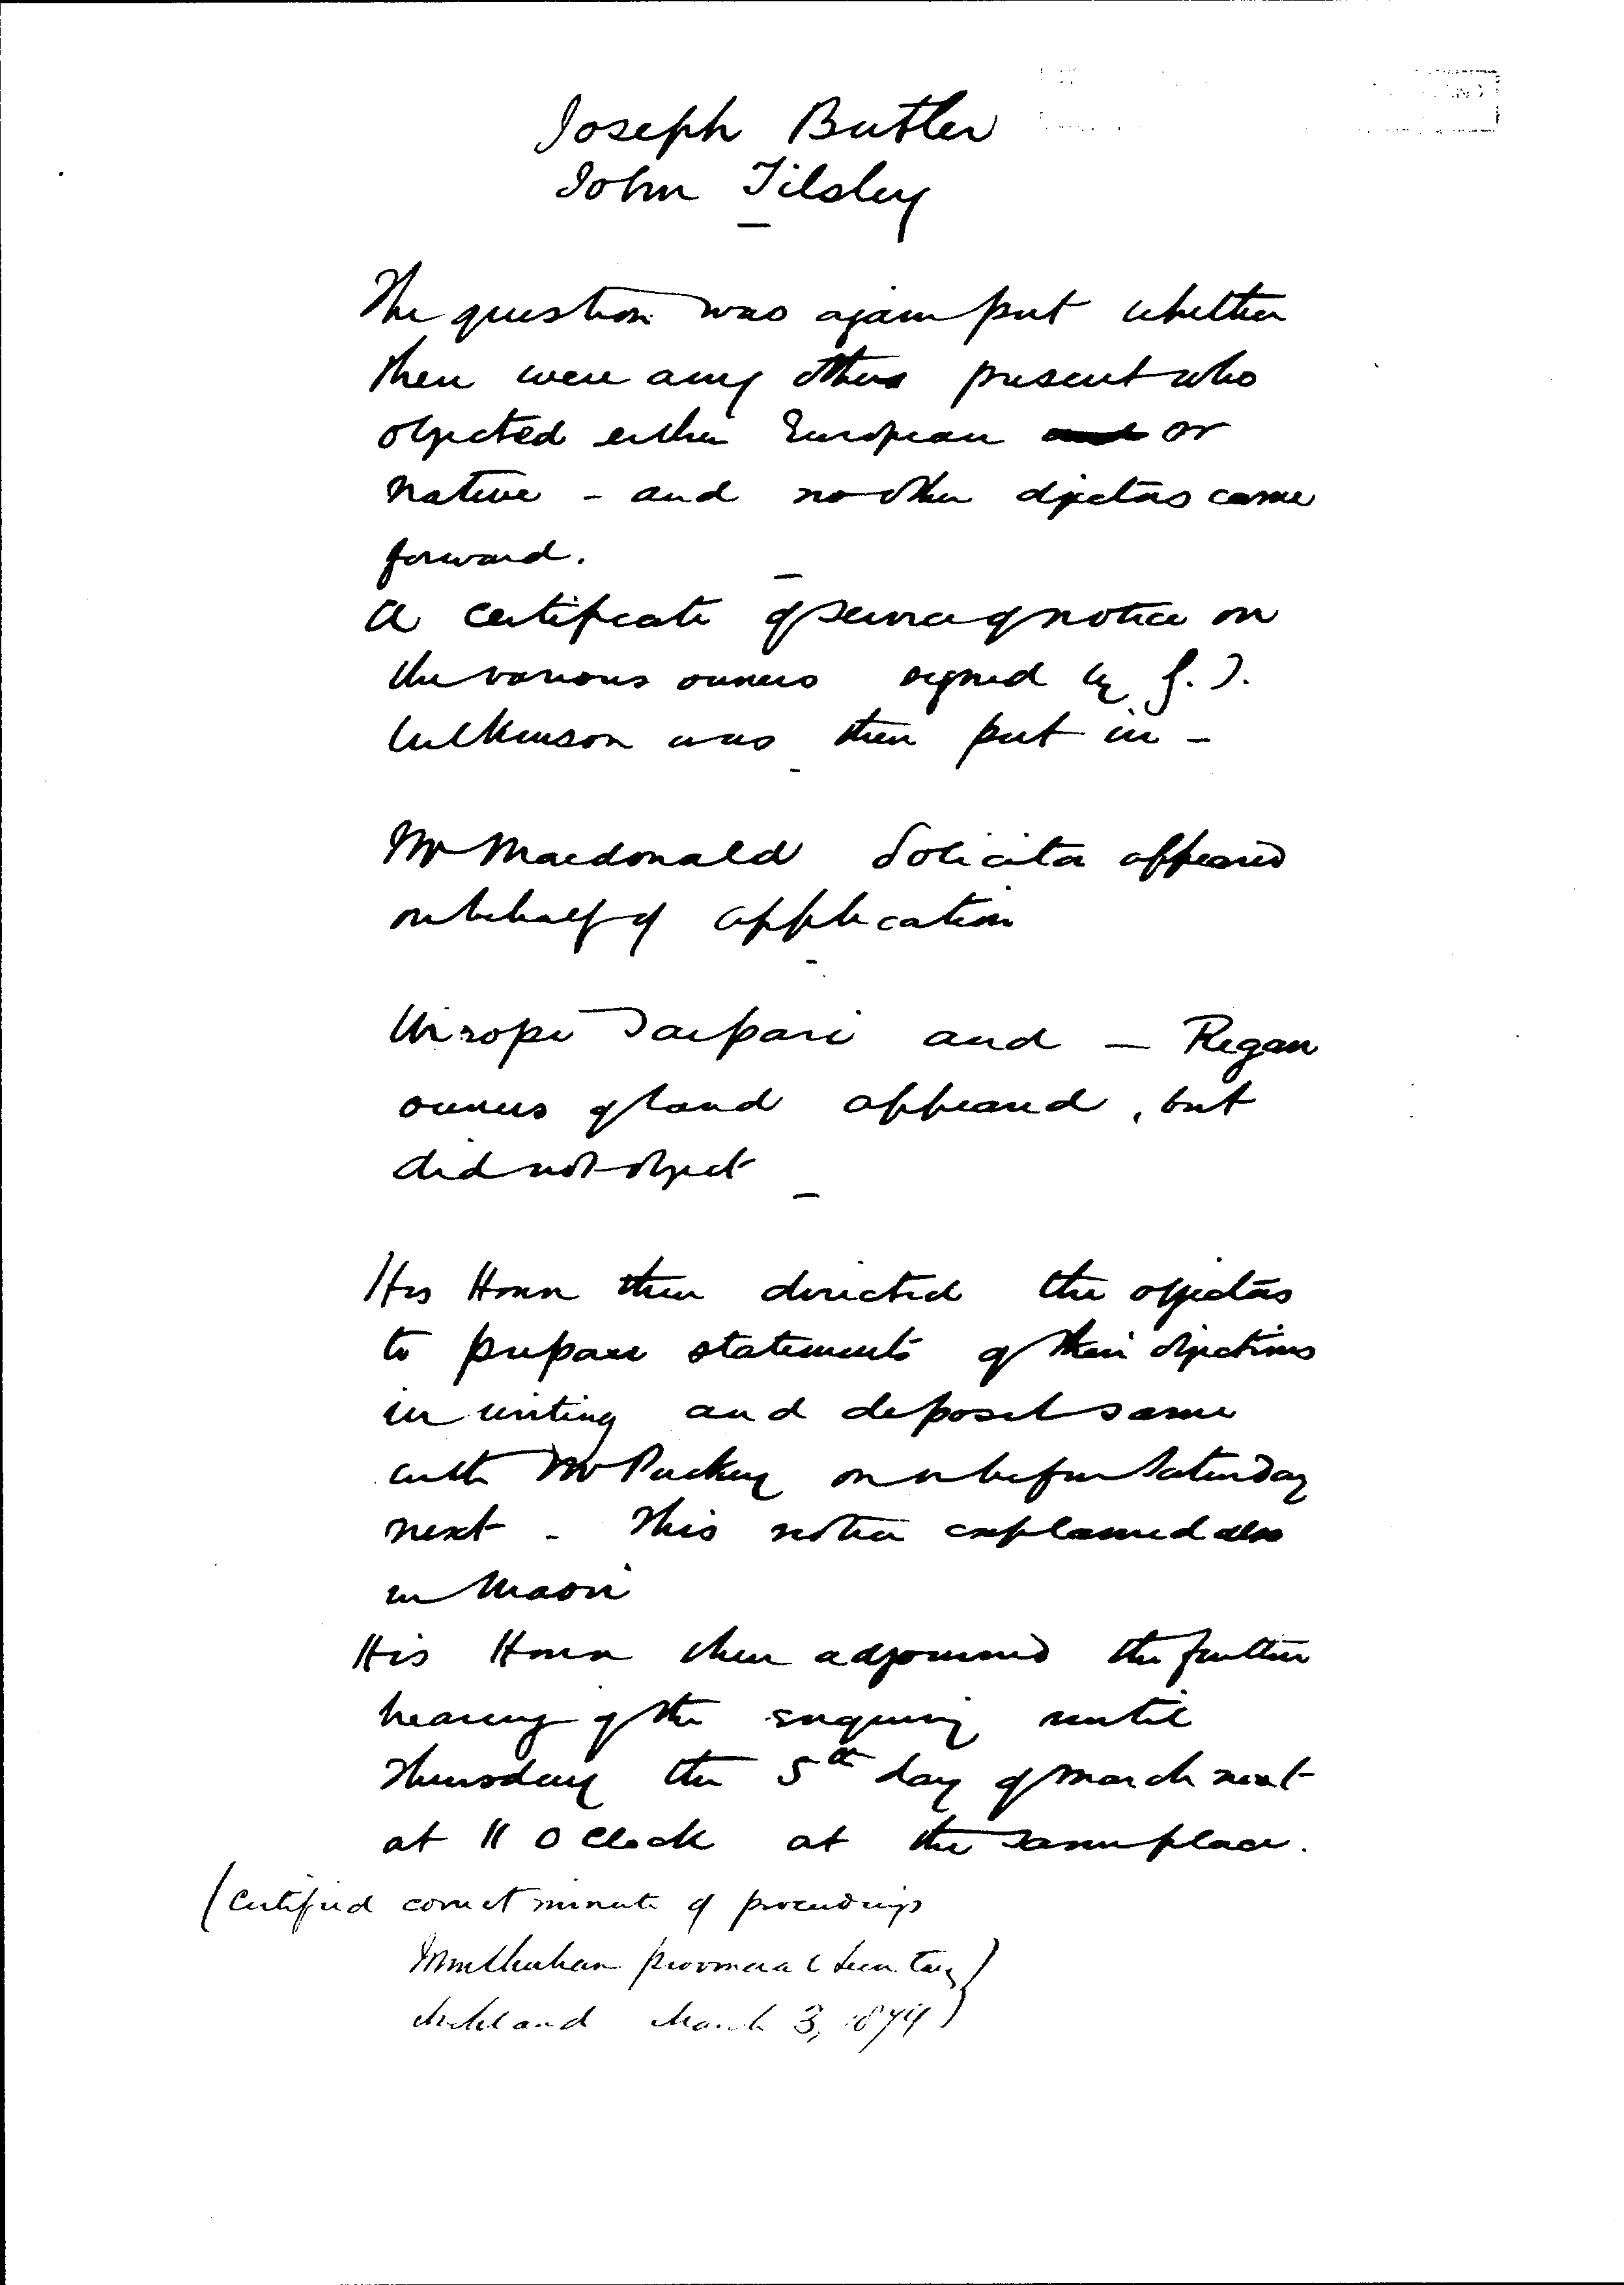 Joseph Butler
John Tilsley
The question was again put whether
there were any others present who
objected either European or
Native - and no other objectors came
forward.
A certificate of service of notice on
the various owners signed by J. I.
Wilkinson was then put in -
Mr Macdonald Solicitor appeared
on behalf of application
Wiropi Taipari and - Regan
owners of land appeared, but
did not object
His Honor then directed the objectors
to prepare statements of their objections
in writing and deposit same
with Mr Puckey on or before Saturday
next - This notice explained also
in Maori
His Honor then adjourned the further
hearing of the enquiry until
Thursday the 5th day of March next
at 11 O Clock at the same place.
(Certified correct minute of proceedings
Provincial Secretary)
Auckland March 3, 1874)